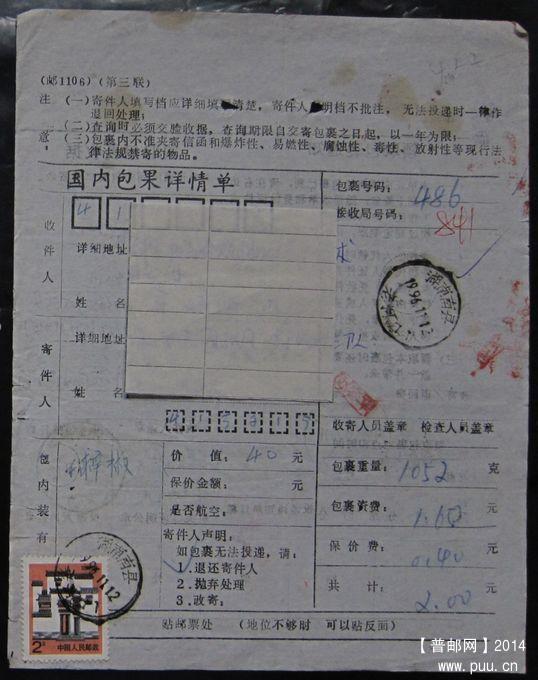 (邮1106)(第三联)
注意
(一)寄件人填写档应详细填 清楚,寄件人 明档不批注,无法投递时一律作
退回处理;
(二)查询时必须交验收据,查询期限自交寄包裹之日起,以一年为限;
(三)包裹内不准夹寄信函和爆炸性、易燃性、腐蚀性、毒性、放射性等现行法
律法规禁寄的物品。
国内包果详情单
包裹号码: 486
4 1
接收局号码: 841
收件人
详细地址
术
姓名
寄件人
详细地址
姓名
湖南南县
1996.11.12
415
收寄人员盖章 检查人员盖章
包内装有
辣椒
价值: 40 元
包裹重量: 1052 克
保价金额: 元
包裹资费: 1.60 元
是否航空:
寄件人声明:
如包裹无法投递,请:
保价费: 0.40 元
1.退还寄件人
2.抛弃处理
3.改寄:
共计: 2.00 元
湖南南县
1996.11.12
2分 中国人民邮政
贴邮票处 (地位不够时 可以贴反面)
【普邮网】2014
www.puu.cn